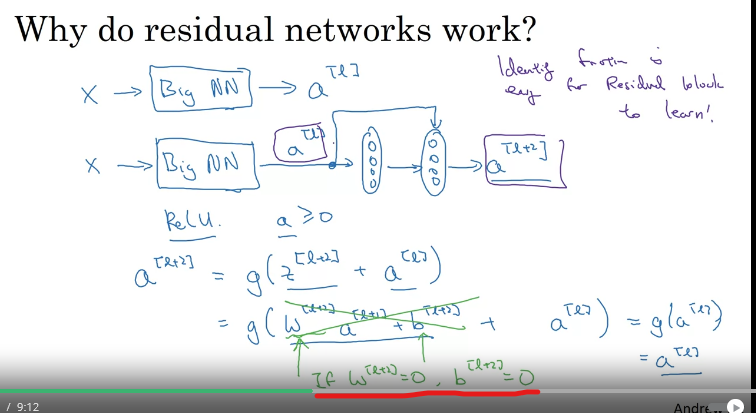 Why do residual networks work?
X → Big NN → a^[l]
Identity function is
easy for Residual block
to learn!
X → Big NN a^[l] → → a^[l+2]
ReLU. a ≥ 0
a^[l+2] = g(z^[l+2] + a^[l])
= g(W^[l+2] a^[l+1] + b^[l+2] + a^[l]) = g(a^[l])
= a^[l]
If W^[l+2] = 0, b^[l+2] = 0
/ 9:12
Andre